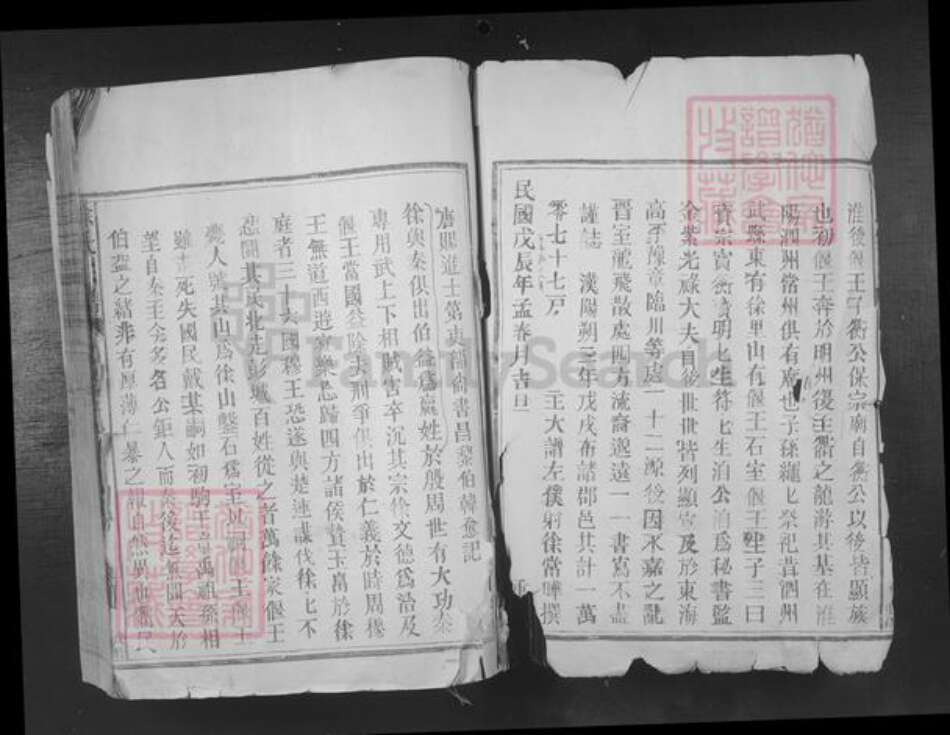 淮後偃王子衡公保宗廟自衡公以後皆顯族
也初偃王奔於明州後主衢之龍游其基在淮
陽泗州常州俱有廟也子孫繩ヒ祭祀昔泗州
武縣東有徐里山有偃王石室偃王生子三曰
寶宗寶衡寶明ヒ生待ヒ生泊公泊為秘書監
金紫光祿大夫自後世世皆列顯宦及於東海
高平豫章臨川等處一十二源後因永嘉之亂
晉室駕飛散處四方流裔遐遠一一書寫不盡
謹誌 漢陽朔三年戊戌布諸郡邑共計一萬
零七十七戶 王大譜左僕射徐常曄撰
民國戊辰年孟春月吉旦
唐賜進士第吏部尚書昌黎伯韓愈記
徐與秦俱出伯益為嬴姓於殷周世有大功秦
專用武上下相賊害卒沉其宗徐文德為治及
偃王當國益除去刑爭俱出於仁義於時周穆
王無道西遊宴樂忘歸四方諸侯贄玉帛於徐
庭者三十六國穆王恐遂與楚連謀伐徐ヒ不
忍鬪其民北走彭城百姓從之者萬餘家偃王
死人號其山為徐山鑿石為室以祠偃王偃王
雖走死失國民戴其嗣如初駒王章禹祖孫相
望自秦王至今名公鉅人而秦後迄無聞夫於
伯益之緒非有厚薄仁暴之報自然異也衢民
FamilySearch